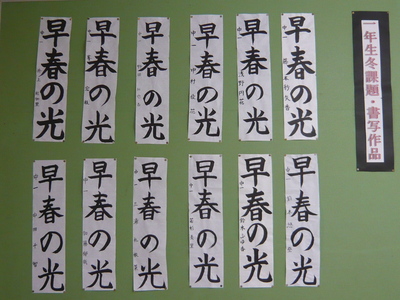 一年生冬課題・書写作品
早春の光
早春の光
早春の光
早春の光
早春の光
早春の光
早春の光
早春の光
早春の光
早春の光
早春の光
早春の光